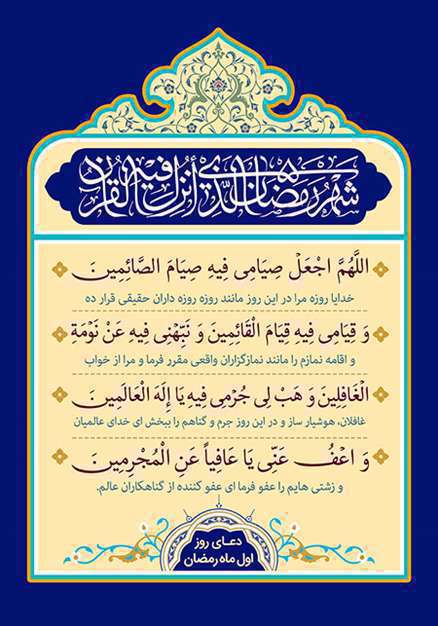 شَهْرُ رَمَضَانَ الَّذِي أُنْزِلَ فِيهِ الْقُرْآنُ
اللَّهُمَّ اجْعَلْ صِيَامِي فِيهِ صِيَامَ الصَّائِمِينَ
خدایا روزه مرا در این روز مانند روزه روزه داران حقیقی قرار ده
وَ قِيَامِي فِيهِ قِيَامَ الْقَائِمِينَ وَ نَبِّهْنِي فِيهِ عَنْ نَوْمَةِ
و اقامه نمازم را مانند نمازگزاران واقعی مقرر فرما و مرا از خواب
الْغَافِلِينَ وَ هَبْ لِي جُرْمِي فِيهِ يَا إِلَهَ الْعَالَمِينَ
غافلان، هوشیار ساز و در این روز جرم و گناهم را ببخش ای خدای عالمیان
وَ اعْفُ عَنِّي يَا عَافِياً عَنِ الْمُجْرِمِينَ
و زشتی هایم را عفو فرما ای عفو کننده از گناهکاران عالم.
دعـای روز
اول ماه رمضان